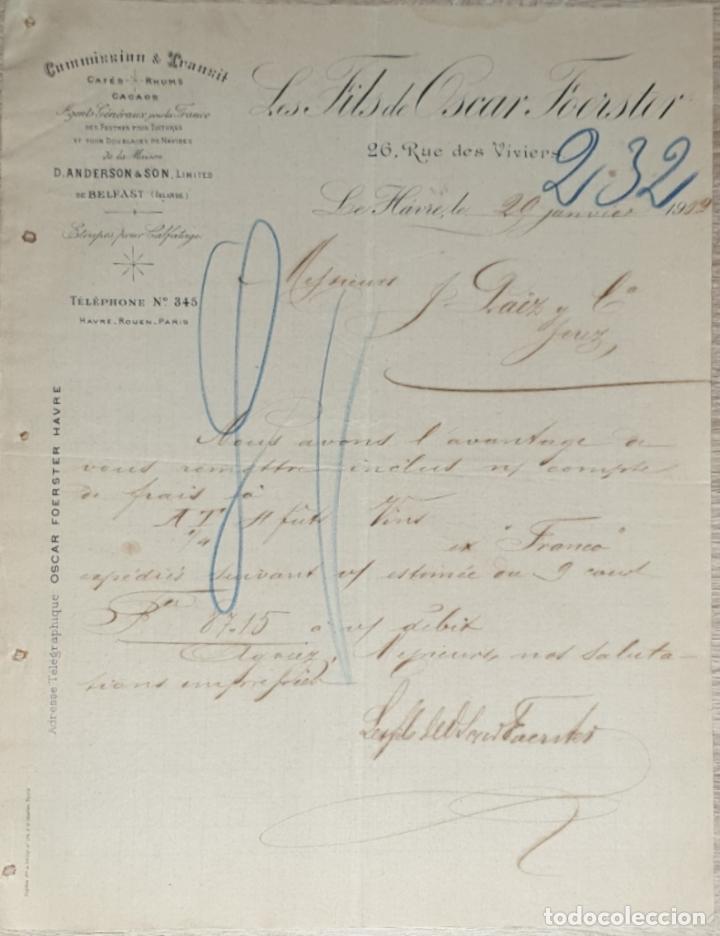 Commission & Transit
CAFÉS - RHUMS
CACAOS
Agents Généraux pour la France
DES FEUTRES POUR TOITURES
ET POUR DOUBLAGES DE NAVIRES
de la Maison
D. ANDERSON & SON, LIMITED
DE BELFAST (IRLANDE)
Etoupes pour Calfatage
TÉLÉPHONE N° 345
HAVRE-ROUEN-PARIS
Les Fils de Oscar Foerster
26, Rue des Viviers
232
Le Hâvre, le 29 janvier 19
Messieurs
J. Páez y Cª
Jerez,
Nous avons l'avantage de
vous remettre inclus n/ compte
de frais à
fûts Vins
ex "Franco"
expédiés suivant v/ estimée du 9 court
87.15 à v/ débit
Agréez, Messieurs, nos saluta-
tions empressées
Les fils de Oscar Foerster
Adresse Télégraphique OSCAR FOERSTER HAVRE
todocoleccion